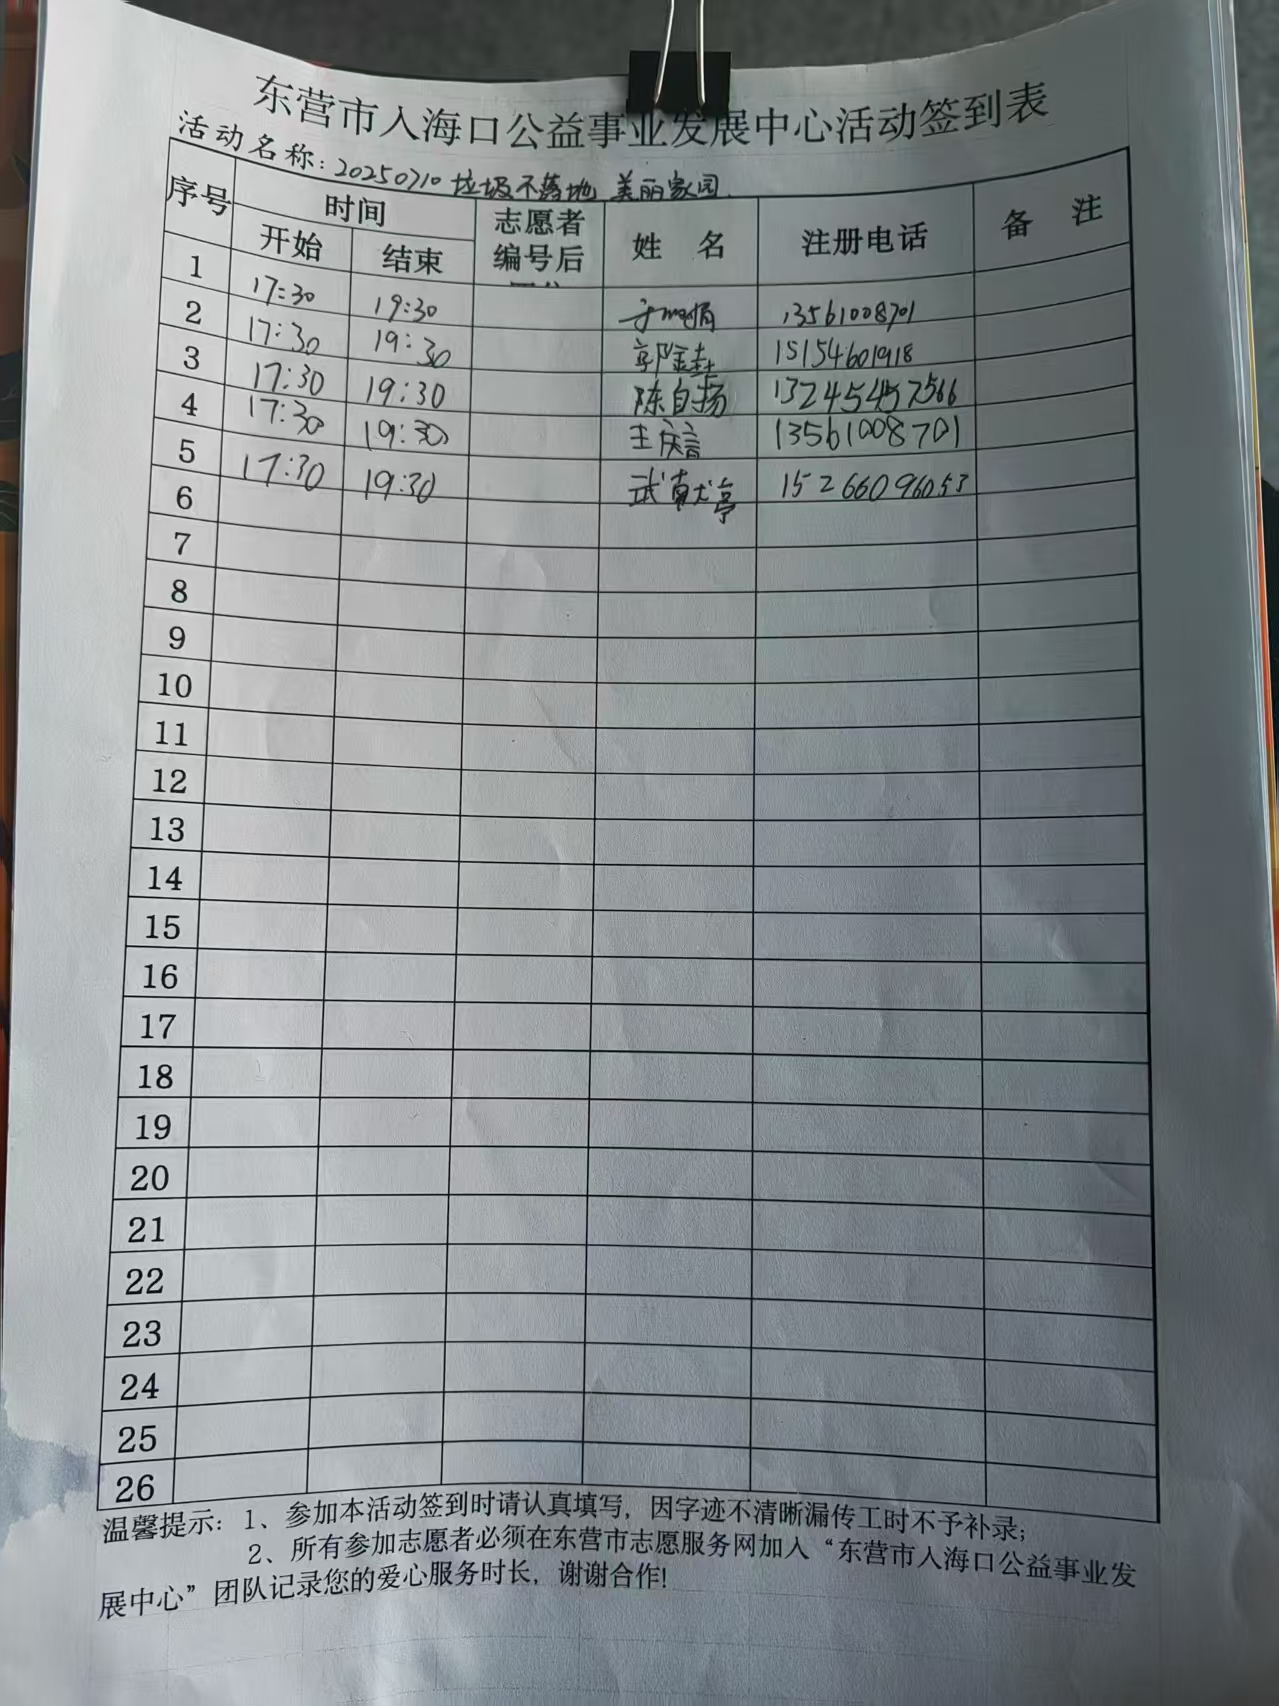 东营市入海口公益事业发展中心活动签到表
活动名称：20250710 垃圾不落地 美丽家园
序号 时间 志愿者编号后 姓名 注册电话 备注
开始 结束
1 17:30 19:30 13561008701
2 17:30 19:30 15154601918
3 17:30 19:30 陈自扬 13245457566
4 17:30 19:30 王庆言 13561008701
5 17:30 19:30 武献亭 15266096053
6
7
8
9
10
11
12
13
14
15
16
17
18
19
20
21
22
23
24
25
26
温馨提示：1、参加本活动签到时请认真填写，因字迹不清晰漏传工时不予补录；
2、所有参加志愿者必须在东营市志愿服务网加入“东营市入海口公益事业发
展中心”团队记录您的爱心服务时长，谢谢合作!